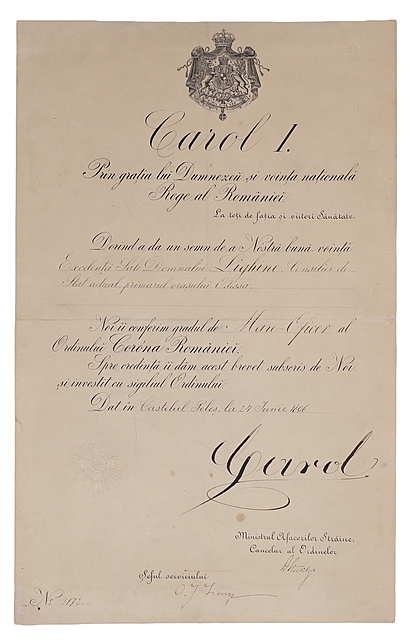 Carol I.
Prin grația lui Dumnezeŭ și voința națională
Rege al României.
La toți de fația și viitori Sănătate.
Dorind a da un semn de a Nostră bună-voință
Excelenței Sale Domnului Lighine, Consilier de
Stat actual, primarul orașului Odessa.
Noi îi conferim gradul de Mare Oficer al
Ordinului Coróna României.
Spre credință îi dăm acest brevet subscris de Noi
și investit cu sigiliul Ordinului.
Dat în Castelul Peleș, la 24 Iunie 1896.
Carol
Ministrul Afacerilor Străine,
Cancelar al Ordinelor
Șeful serviciului
No